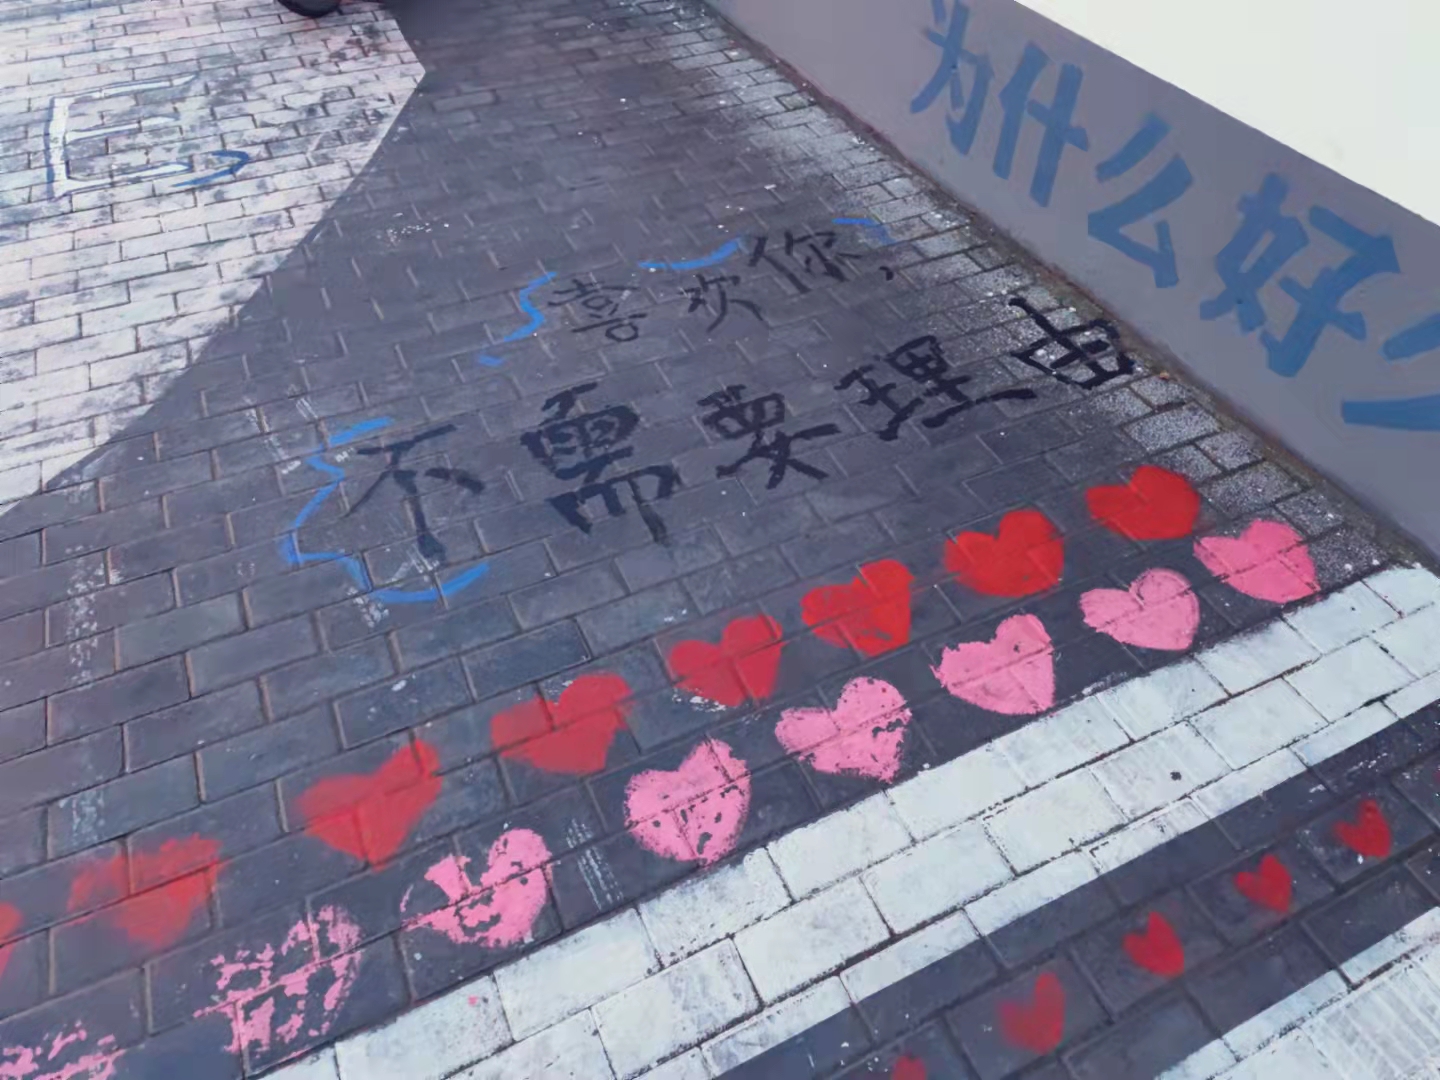 为什么好
喜欢你,
不需要理由